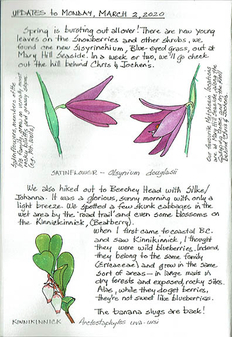 UPDATES to MONDAY, MARCH 2, 2020
Spring is bursting out all over! There are new young
leaves on the Snowberries and other shrubs, we
found one new Sisyrinchium, Blue-eyed grass, out at
Mary Hill Seaside. In a week or two, we'll go check
out the hill behind Chris & Jochen's.
SATINFLOWER - Olsynium douglasii
We also hiked out to Beechey Head with Silke/
Johanna. It was a glorious, sunny morning with only a
light breeze. We spotted a few skunk cabbages in the
wet area by the 'road trail' and even some blossoms on
the Kinnickinnick, (Bearberry).
When I first came to coastal B.C.
and saw Kinnikinnick, I thought
they were wild blueberries. Indeed,
they belong to the same family
(Ericaceae) and grow in the same
sort of areas — in large mats in
dry forests and exposed, rocky sites.
Alas, while they do get berries,
they're not sweet like blueberries.
The banana slugs are back!
KINNIKINNICK Arctostaphylos uva-ursi